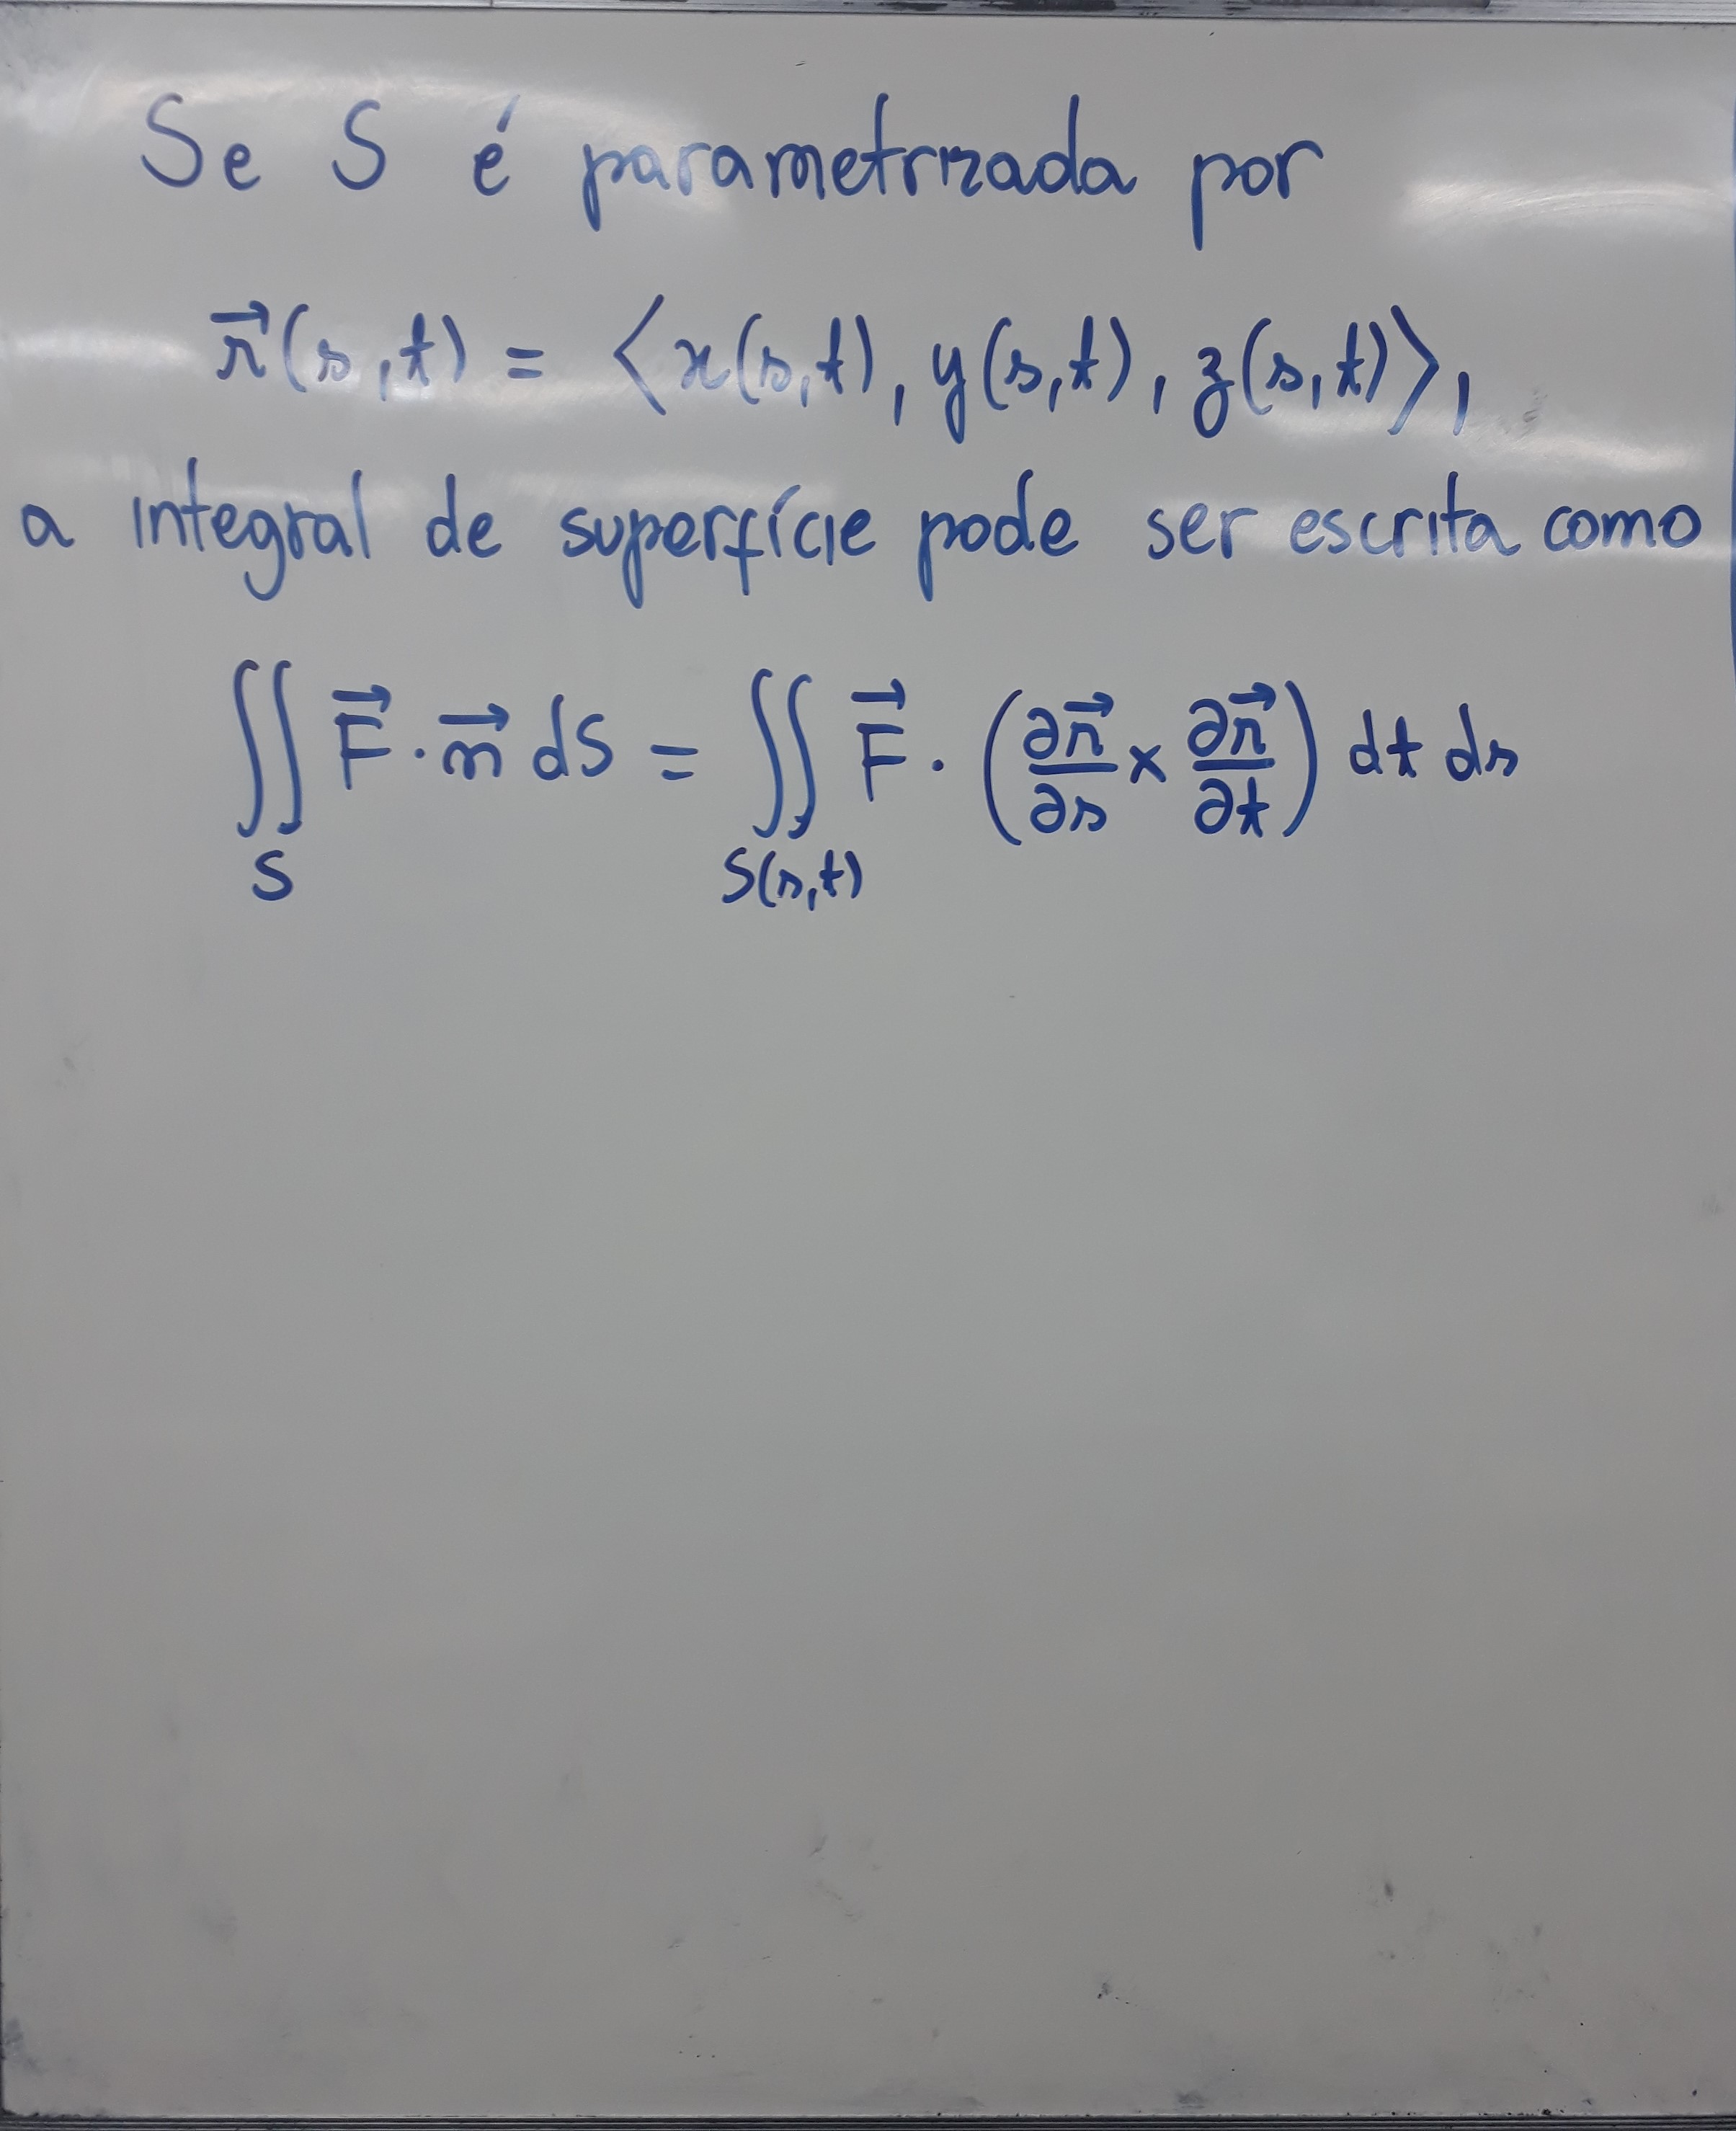 Se S é parametrizada por
r⃗(s,t) = ⟨x(s,t), y(s,t), z(s,t)⟩,
a integral de superfície pode ser escrita como
∬_S F⃗ · n⃗ dS = ∬_{S(s,t)} F⃗ · (∂r⃗/∂s × ∂r⃗/∂t) dt ds